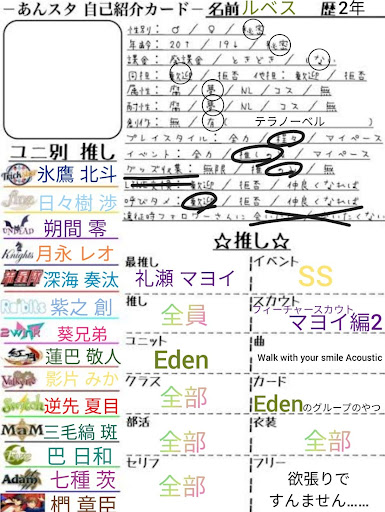 －あんスタ 自己紹介カード－ 名前 ルベス 歴 2年
性別： ♂ ／ ♀ ／ 秘密
年齢： 20↑ ／ 19↓ ／ 秘密
課金： 廃課金 ／ ときどき ／ なし
同担： 歓迎 ／ 拒否 他担： 歓迎 ／ 拒否
属性： 腐 ／ 夢 ／ NL ／ コス ／ 無
耐性： 腐 ／ 夢 ／ NL ／ コス ／ 無
創作： 無 ／ 有（ テラノーベル ）
プレイスタイル： 全力 ／ 程々 ／ マイペース
イベント： 全力 ／ 推しのみ ／ マイペース
グッズ収集： 無限
拒否 ／ 仲良くなれば
呼びタメ： 歓迎 ／ 拒否 ／ 仲良くなれば
ユニ別 推し
Trickstar 氷鷹 北斗
fine 日々樹 渉
UNDEAD 朔間 零
Knights 月永 レオ
流星隊 深海 奏汰
Ra*bits 紫之 創
2wink 葵兄弟
紅月 蓮巴 敬人
Valkyrie 影片 みか
Switch 逆先 夏目
MaM 三毛縞 斑
Eve 巴 日和
Adam 七種 茨
椚 章臣
☆推し☆
最推し 礼瀬 マヨイ
イベント SS
推し 全員
スカウト フィーチャースカウト マヨイ編2
ユニット Eden
曲 Walk with your smile Acoustic
クラス 全部
カード Edenのグループのやつ
部活 全部
衣装 全部
セリフ 全部
フリー 欲張りで
すんません……